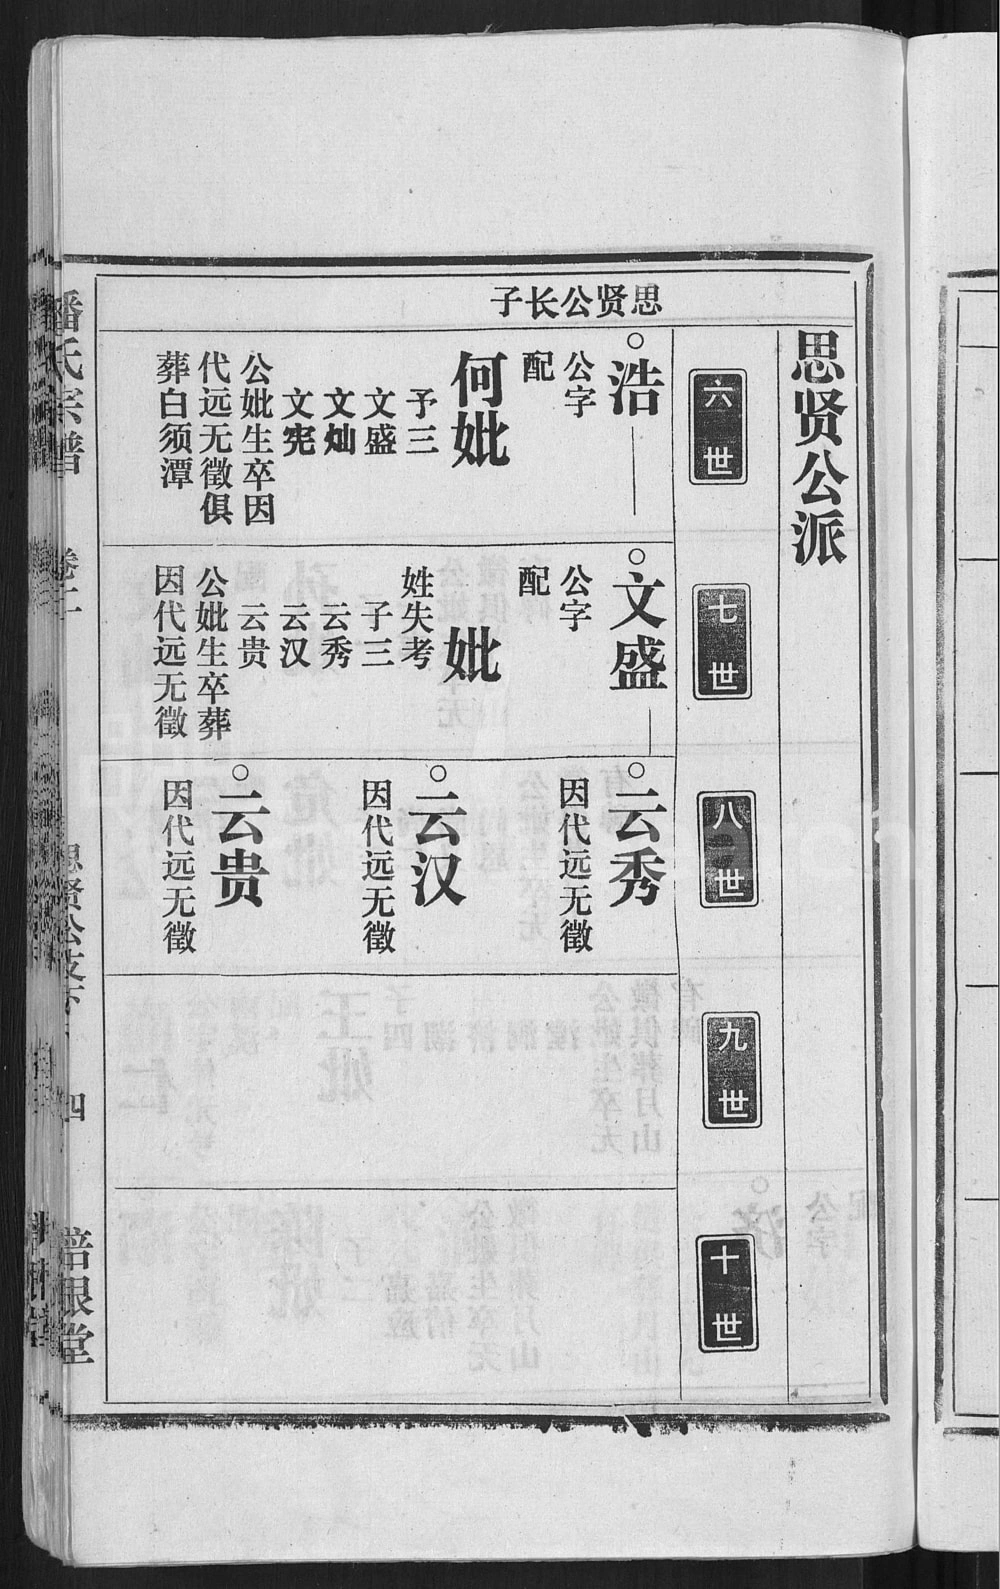 思贤公派
六世
七世
八世
九世
十世
思贤公长子
○浩
公字
配
何妣
予三
文盛
文灿
文宪
公妣生卒因
代远无徵俱
葬白须潭
○文盛
公字
配
妣
姓失考
子三
云秀
云汉
云贵
公妣生卒葬
因代远无徵
○云秀
因代远无徵
○云汉
因代远无徵
○云贵
因代远无徵
潘氏宗谱
卷二
思贤公支下
四
培根堂